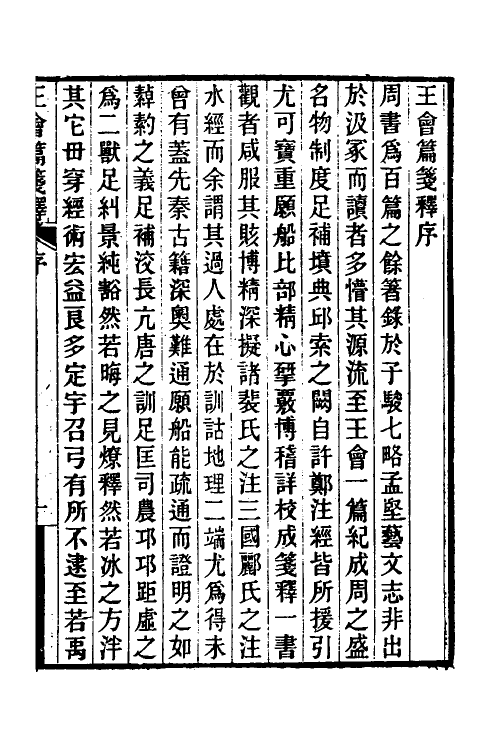 王會篇箋釋序
周書爲百篇之餘箸錄於子駿七略孟堅藝文志非出
於汲冢而讀者多懵其源流至王會一篇紀成周之盛
名物制度足補墳典邱索之闕自許鄭注經皆所援引
尤可寶重願船比部精心揅覈博稽詳校成箋釋一書
觀者咸服其賅博精深擬諸裴氏之注三國酈氏之注
水經而余謂其過人處在於訓詁地理二端尤爲得未
曾有蓋先秦古籍深奧難通願船能疏通而證明之如
䔵䓸之義足補洨長亢唐之訓足匡司農邛邛距虛之
爲二獸足糾景純豁然若晦之見燎釋然若冰之方泮
其它毌穿經術宏益良多定宇召弓有所不逮至若禹
王會篇箋釋
序
一